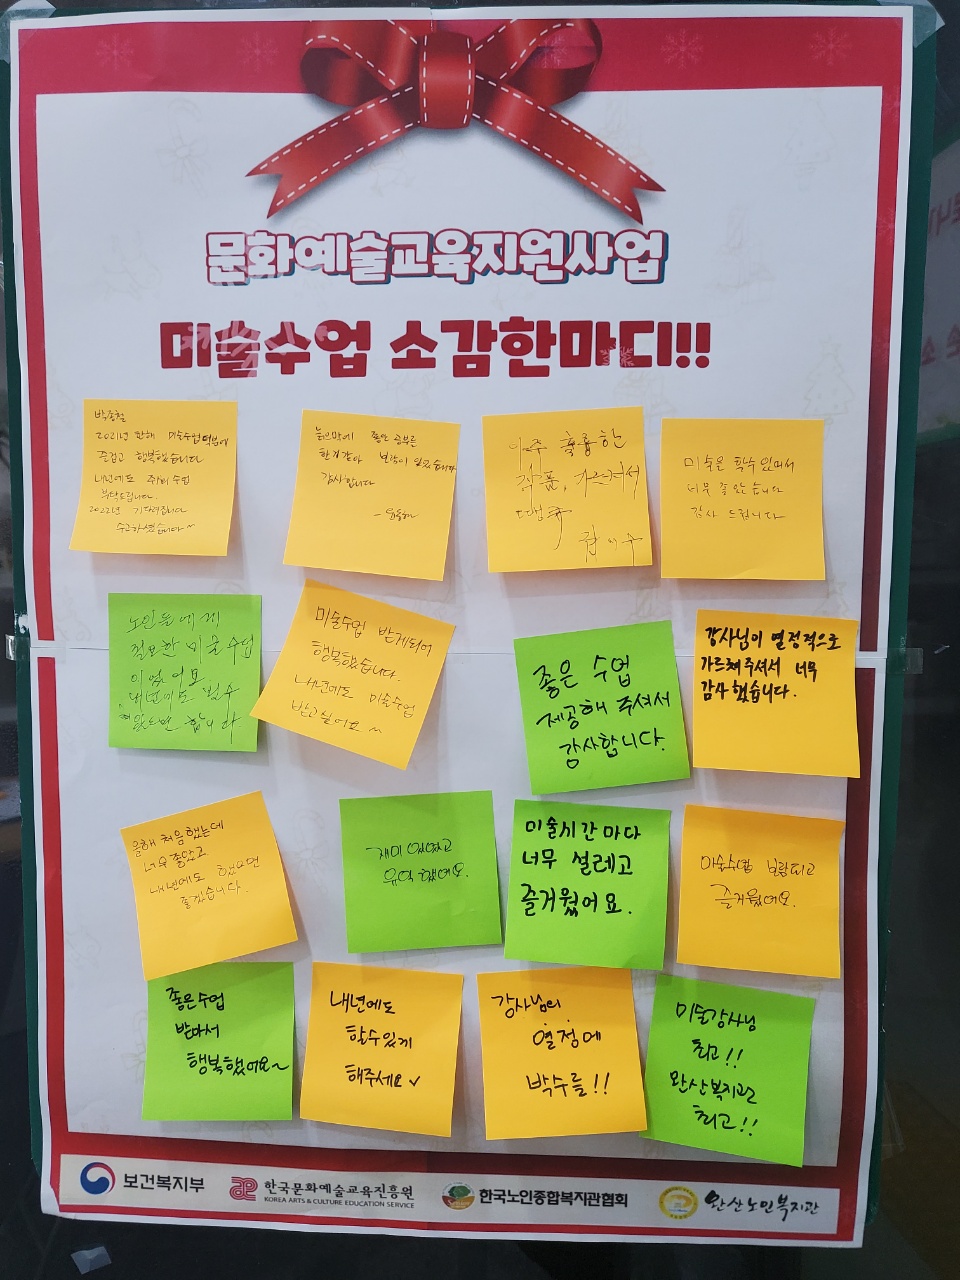 문화예술교육지원사업
미술수업 소감한마디!!
2021년 한해 미술수업 덕분에
즐겁고 행복했습니다
내년에도 저희 수업
부탁드립니다.
2022년 기다려집니다
수고하셨습니다~
늙으막에 좋은 공부를
한것같아 보람이 있었습니다
감사합니다
아주 훌륭한
작품, 가르쳐서
미술을 할수 있어서
너무 좋았습니다
감사 드립니다
노인들에게
필요한 미술수업
이었어요
내년에도 필수
했으면 합니다
미술수업 받게되어
행복했습니다.
내년에도 미술수업
받고싶어요~
좋은 수업
제공해 주셔서
감사합니다.
강사님이 열정적으로
가르쳐주셔서 너무
감사했습니다.
올해 처음했는데
너무 좋았고
내년에도 했으면
좋겠습니다.
재미있었고
유익했어요.
미술시간마다
너무 설레고
즐거웠어요.
미술수업 보람되고
즐거웠어요.
좋은수업
받아서
행복했어요~
내년에도
할수있게
해주세요
강사님의
열정에
박수를!!
미술강사님
최고!!
완산복지관
최고!!
보건복지부
한국문화예술교육진흥원
KOREA ARTS & CULTURE EDUCATION SERVICE
한국노인종합복지관협회
완산노인복지관